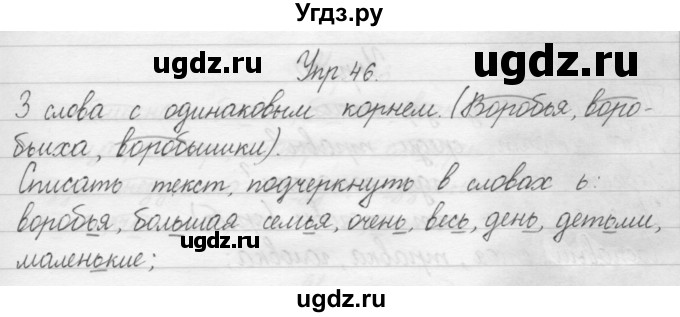 Угдз.ру
ugdz.ru ugdz.ru
Упр 46.
3 слова с одинаковым корнем. (Воробья, воро-
бьиха, воробышки).
Списать текст, подчеркнуть в словах ь:
ugdz.ru ugdz.ru
воробья, большая семья, очень, весь, день, детьми,
маленькие;
ugdz.ru